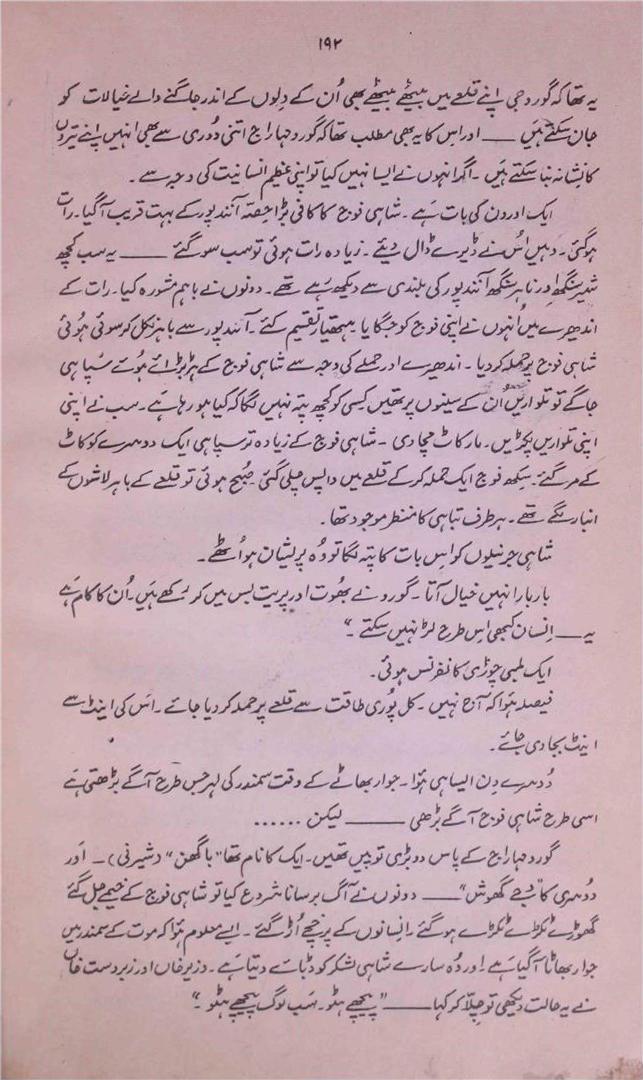 ۱۹۲
یہ تھا کہ گورو جی اپنے قلعے میں بیٹھے بیٹھے بھی اُن کے دلوں کے اندر جاگنے والے خیالات کو
جان سکتے ہیں ــــ اور اس کا یہ بھی مطلب تھا کہ گورو مہاراج اتنی دُوری سے بھی انہیں اپنے تیروں
کا نشانہ بنا سکتے ہیں ۔ اگر انہوں نے ایسا نہیں کیا تو اپنی عظیم انسانیت کی وجہ سے ۔
ایک اور دن کی بات ہے ۔ شاہی فوج کا کافی بڑا حصّہ آنند پور کے بہت قریب آگیا ۔ رات
ہوگئی ۔ وہیں اُس نے ڈیرے ڈال دیئے ۔ زیادہ رات ہوئی تو سب سو گئے ــــ یہ سب کچھ
شیر سنگھ اور ناہر سنگھ آنند پور کی بلندی سے دیکھ رہے تھے ۔ دونوں نے باہم مشورہ کیا ۔ رات کے
اندھیرے میں اُنہوں نے اپنی فوج کو جگایا ۔ ہتھیار تقسیم کئے ۔ آنند پور سے باہر نکل کر سوئی ہوئی
شاہی فوج پر حملہ کر دیا ۔ اندھیرے اور حملے کی وجہ سے شاہی فوج کے ہڑبڑائے ہوئے سپاہی
جاگے تو تلواریں اُن کے سینوں پر تھیں کسی کو کچھ پتہ نہیں لگا کہ کیا ہو رہا ہے ۔ سب نے اپنی
اپنی تلواریں پکڑیں ۔ مار کاٹ مچا دی ۔ شاہی فوج کے زیادہ تر سپاہی ایک دوسرے کو کاٹ
کے مر گئے ۔ سکھ فوج ایک حملہ کر کے قلعے میں واپس چلی گئی ۔ صبح ہوئی تو قلعے کے باہر لاشوں کے
انبار لگے تھے ۔ ہر طرف تباہی کا منظر موجود تھا ۔
شاہی جرنیلوں کو اس بات کا پتہ لگا تو وُہ پریشان ہو اُٹھے ۔
بار بار انہیں خیال آتا ۔ گورو نے بھُوت اور پریت بس میں کر رکھے ہیں ۔ اُن کا کام ہے
یہ ــــ انسان کبھی اس طرح لڑ نہیں سکتے ۔“
ایک لمبی چوڑی کانفرنس ہوئی ۔
فیصلہ ہوا کہ آج نہیں ۔ کل پُوری طاقت سے قلعے پر حملہ کر دیا جائے ۔ اس کی اینٹ سے
اینٹ بجا دی جائے ۔
دُوسرے دن ایسا ہی ہوا ۔ جوار بھاٹے کے وقت سمندر کی لہر جس طرح آگے بڑھتی ہے
اسی طرح شاہی فوج آگے بڑھی ــــ لیکن ......
گورو مہاراج کے پاس دو بڑی توپیں تھیں ۔ ایک کا نام تھا ”باگھن“ (شیرنی) ۔ اور
دوسری کا ”بجے گھوش“ ــــ دونوں نے آگ برسانا شروع کیا تو شاہی فوج کے خیمے جل گئے
گھوڑے ٹکڑے ٹکڑے ہو گئے ۔ انسانوں کے پرخچے اُڑ گئے ۔ ایسے معلوم ہوا کہ موت کے سمندر میں
جوار بھاٹا آگیا ہے اور وُہ سارے شاہی لشکر کو ڈبائے دیتا ہے ۔ وزیر خاں اور زبردست خاں
نے یہ حالت دیکھی تو چلّا کر کہا ــــ ”پیچھے ہٹو ۔ سب لوگ پیچھے ہٹو ۔“